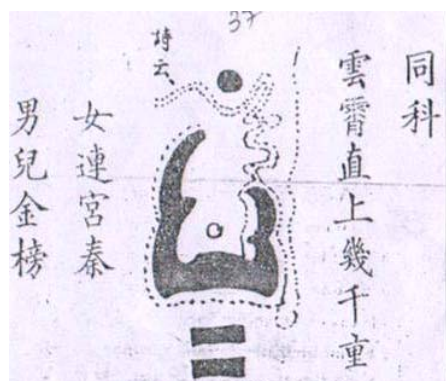 37
同科
雲霄直上幾千重
詩云、
女連宮秦
男兒金榜